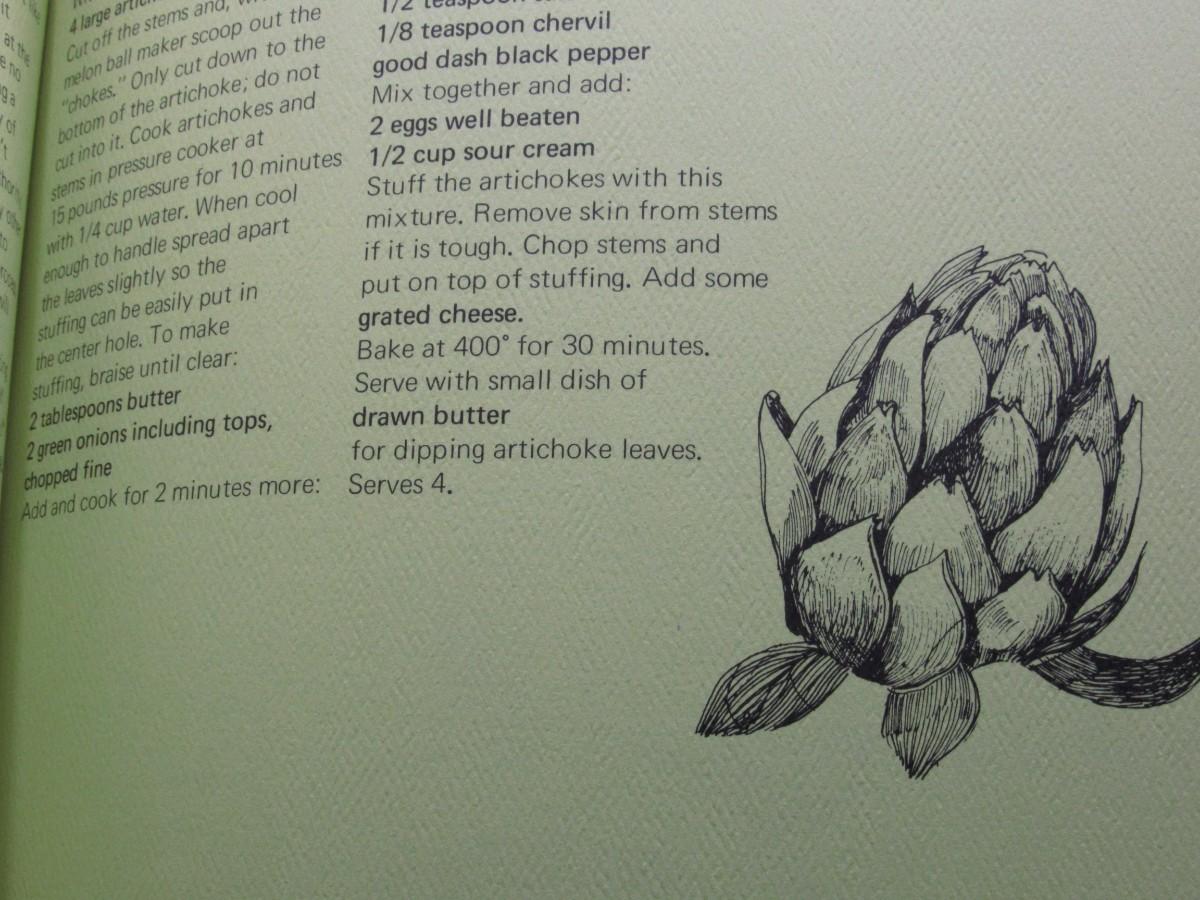 it
at the
no
4 large
Cut off the stems and,
melon ball maker scoop out the
"chokes." Only cut down to the
bottom of the artichoke; do not
cut into it. Cook artichokes and
stems in pressure cooker at
15 pounds pressure for 10 minutes
with 1/4 cup water. When cool
enough to handle spread apart
the leaves slightly so the
stuffing can be easily put in
the center hole. To make
stuffing, braise until clear:
2 tablespoons butter
2 green onions including tops,
chopped fine
Add and cook for 2 minutes more:
1/2 teaspoon
1/8 teaspoon chervil
good dash black pepper
Mix together and add:
2 eggs well beaten
1/2 cup sour cream
Stuff the artichokes with this
mixture. Remove skin from stems
if it is tough. Chop stems and
put on top of stuffing. Add some
grated cheese.
Bake at 400° for 30 minutes.
Serve with small dish of
drawn butter
for dipping artichoke leaves.
Serves 4.